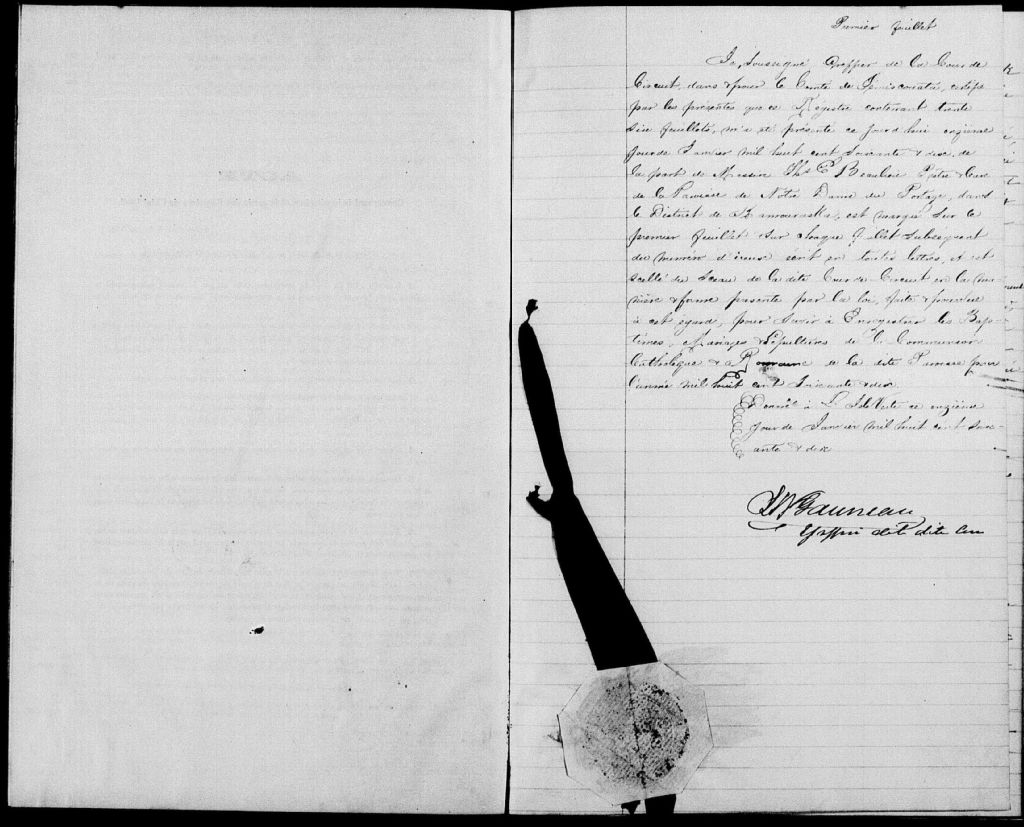 Premier feuillet
Je, Soussigné Greffier de la Cour de
Circuit, dans & pour le Comté de Témiscouata, certifie
par les présentes que ce Régistre contenant trente
six feuillets, m'a été présenté ce jourd'hui onzième
jour de Janvier mil huit cent soixante & dix, de
la part de Messire Ths E Beaulieu Prêtre & Curé
de la Paroisse de Notre Dame du Portage, dans
le District de Kamouraska, est marqué sur le
premier feuillet & sur chaque feuillet subséquent
du numéro d'iceux écrit en toutes lettres, et est
scellé du sceau de la dite Cour de Circuit en la ma-
nière & forme par la loi, faite & pourvue
à cet égard, pour servir à Enregistrer les Bap-
têmes, Mariages & Sépultures de la Communion
Catholique & Romaine de la dite Paroisse pour
l'année mil huit cent soixante & dix.
Donné à L'Isle Verte ce onzième
jour de Janvier mil huit cent soix-
ante & dix
Gauvreau
Greffier de la dite Cour